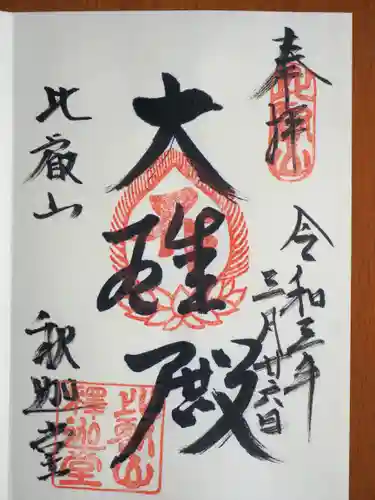 奉拝
令和三年
三月廿六日
大雄殿
比叡山
釈迦堂
比叡山
釋迦堂